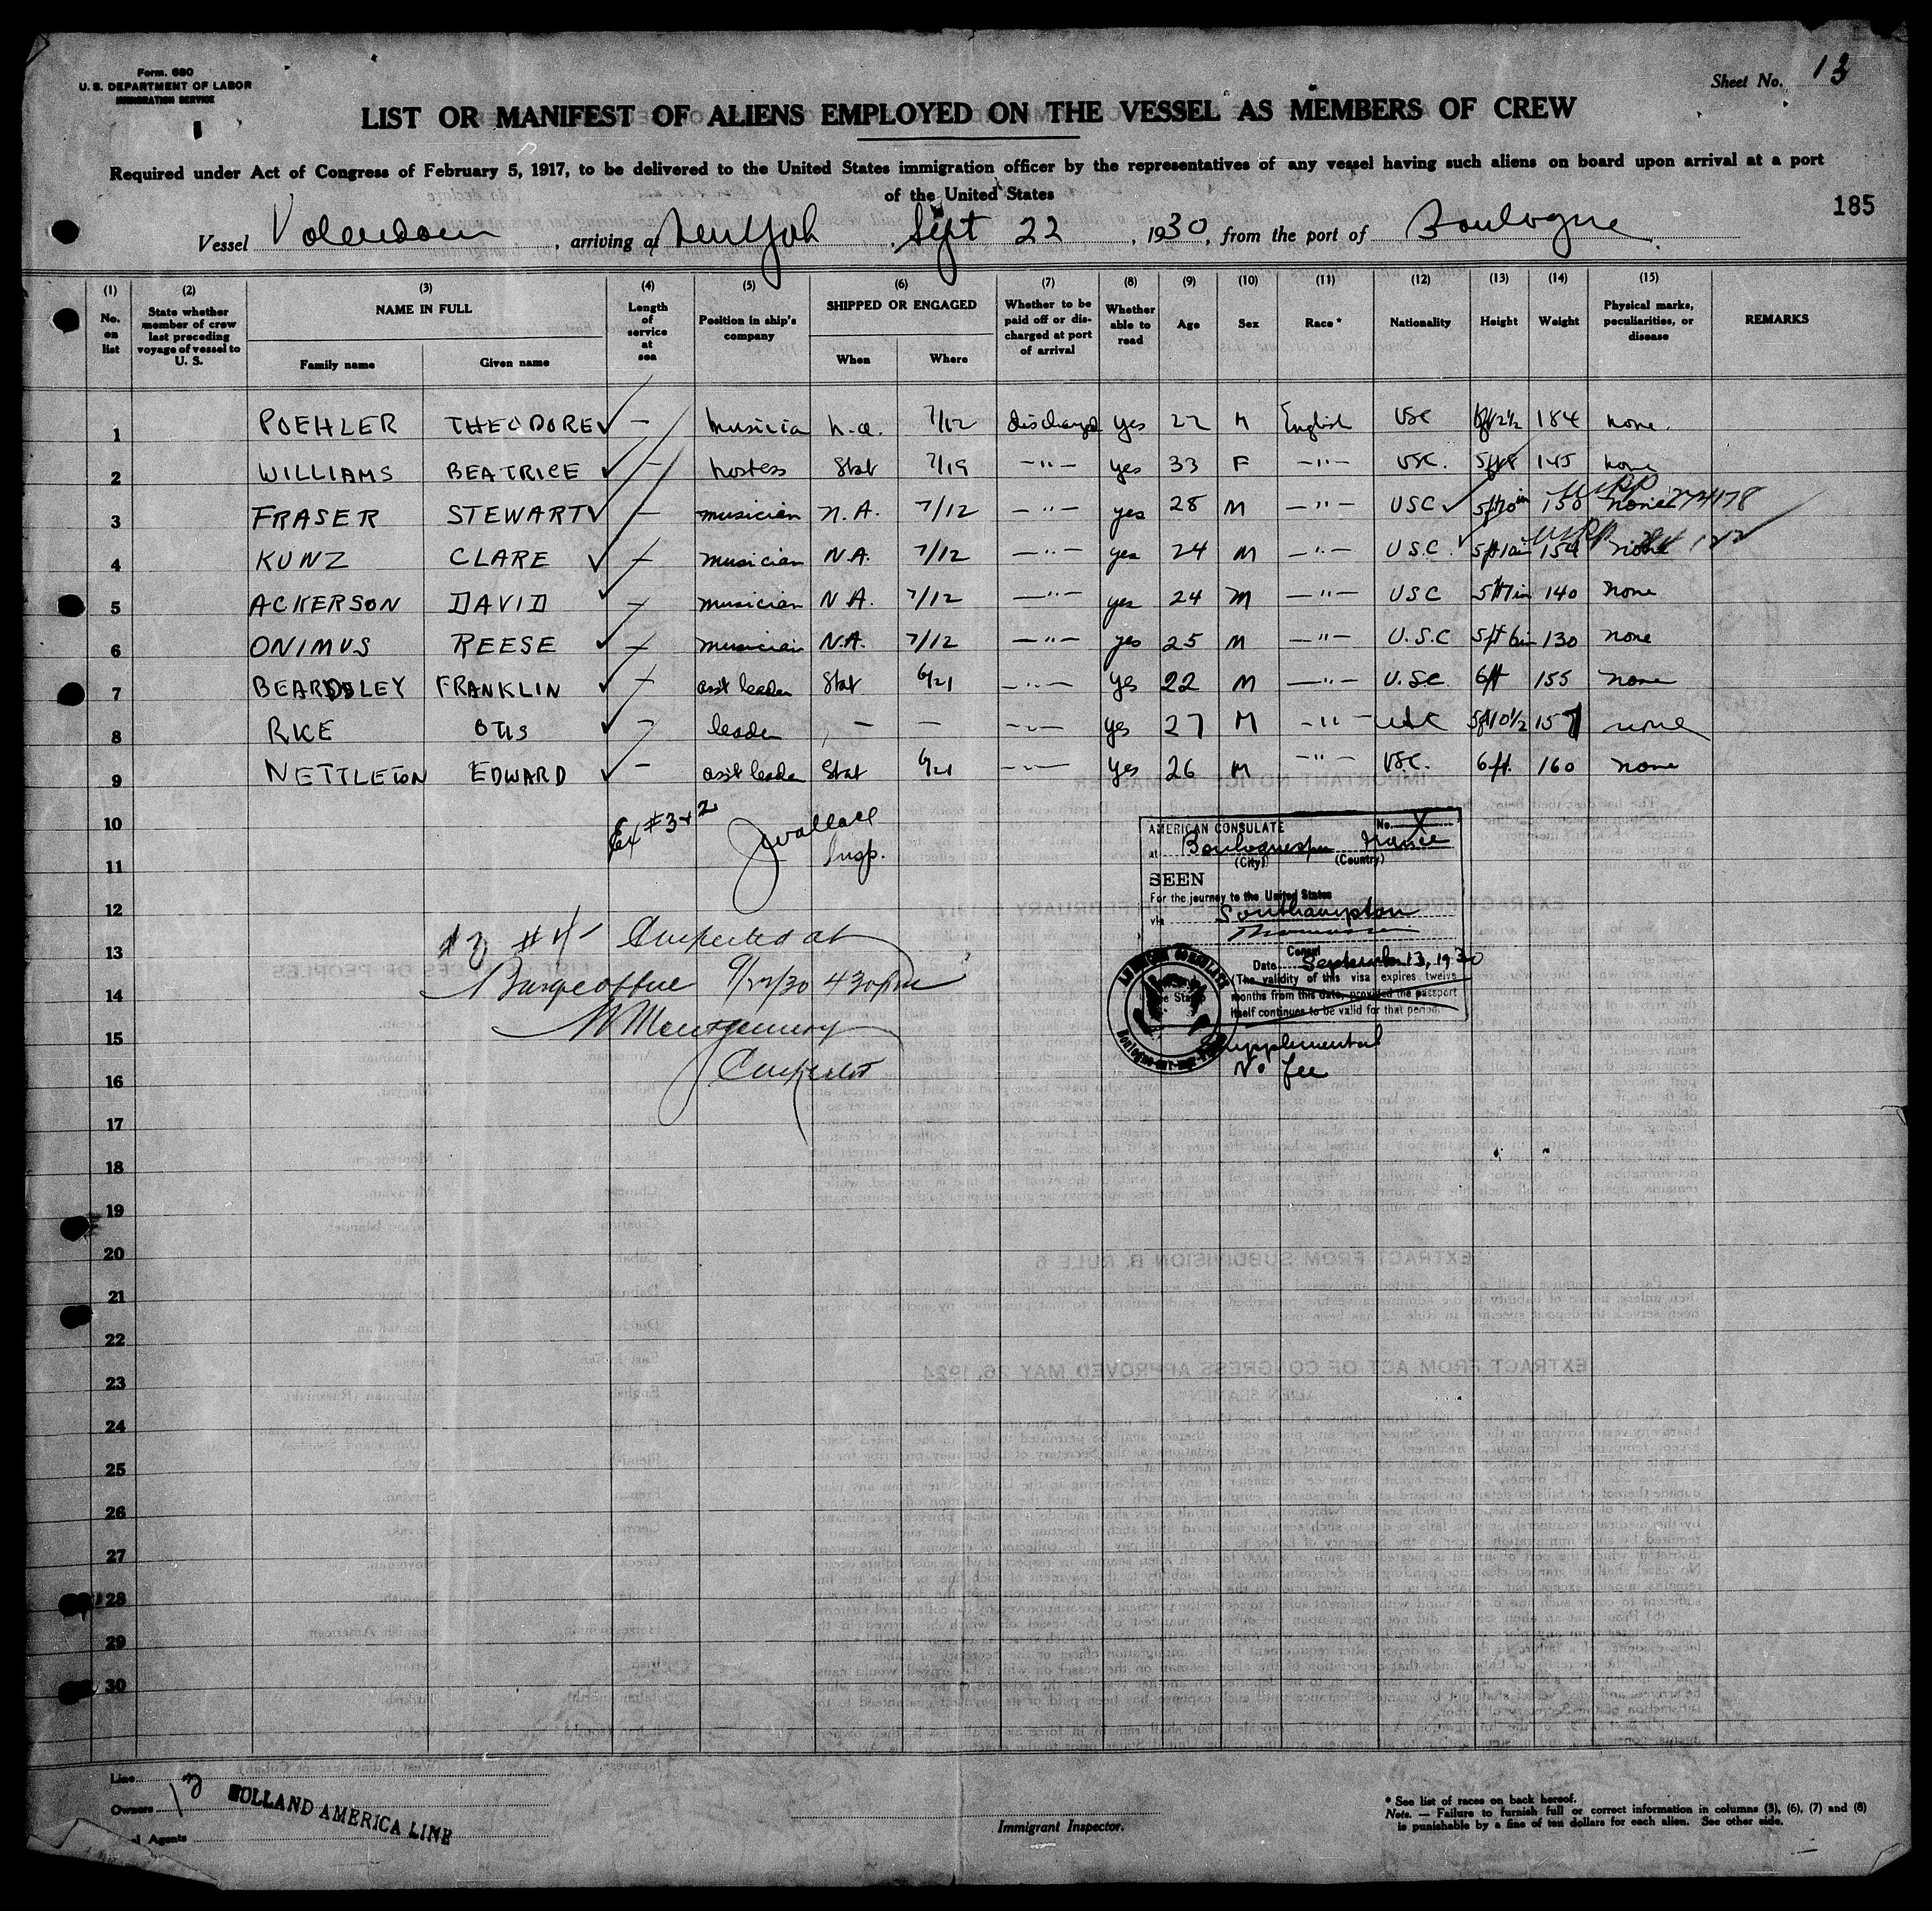 Form. 680
U. S. DEPARTMENT OF LABOR
IMMIGRATION SERVICE
Sheet No. 13
LIST OR MANIFEST OF ALIENS EMPLOYED ON THE VESSEL AS MEMBERS OF CREW
Required under Act of Congress of February 5, 1917, to be delivered to the United States immigration officer by the representatives of any vessel having such aliens on board upon arrival at a port
of the United States
185
Vessel Volendam, arriving at New York, Sept 22, 1930, from the port of Boulogne
(1) No. on list
(2) State whether member of crew last preceding voyage of vessel to U. S.
(3) NAME IN FULL Family name Given name
(4) Length of service at sea
(5) Position in ship's company
(6) SHIPPED OR ENGAGED When Where
(7) Whether to be paid off or discharged at port of arrival
(8) Whether able to read
(9) Age
(10) Sex
(11) Race *
(12) Nationality
(13) Height
(14) Weight
(15) Physical marks, peculiarities, or disease
REMARKS
1 POEHLER THEODORE ✓ — musician N.A. 7/12 discharged yes 22 M English USC 184 none.
2 WILLIAMS BEATRICE ✓ — hostess Stat 7/19 —"— yes 33 F —"— USC. 145 none
3 FRASER STEWART ✓ — musician N.A. 7/12 —"— yes 28 M —"— USC ✓ 5ft10in 150 none
4 KUNZ CLARE ✓ — musician N.A. 7/12 —"— yes 24 M —"— U.S.C. 154 none
5 ACKERSON DAVID ✓ — musician N.A. 7/12 —"— yes 24 M —"— USC 5ft7in 140 none
6 ONIMUS REESE ✓ — musician N.A. 7/12 —"— yes 25 M —"— U.S.C 5ft 6in 130 none
7 BEARDSLEY FRANKLIN ✓ — asst leader Stat 6/21 —"— yes 22 M —"— U.S.C. 6ft 155 none
8 RICE OTIS ✓ — leader — — —"— yes 27 M —"— USC 5ft10½ 157 none
9 NETTLETON EDWARD ✓ — asst leader Stat 6/21 —"— yes 26 M —"— USC. 6ft. 160 none
10
Ex #3+2 J Wallace
11 Insp.
AMERICAN CONSULATE No. X
at Boulogne s/m France
(City) (Country)
SEEN
For the journey to the United States
via Southampton
Consul
Date September 13, 1930
(The validity of this visa expires twelve
months from this date, provided the passport
itself continues to be valid for that period.
AMERICAN CONSULATE
Boulogne-sur-mer
Supplemental
No fee
12
13 #3 #4 Inspected at
14 Barge office 9/22/30 4 30 pm
15 Montgomery
16 Inspector
17
18
19
20
21
22
23
24
25
26
27
28
29
30
Line
Owners 13 HOLLAND AMERICA LINE
Agents
Immigrant Inspector.
* See list of races on back hereof.
Note. — Failure to furnish full or correct information in columns (3), (6), (7) and (8)
is punishable by a fine of ten dollars for each alien. See other side.